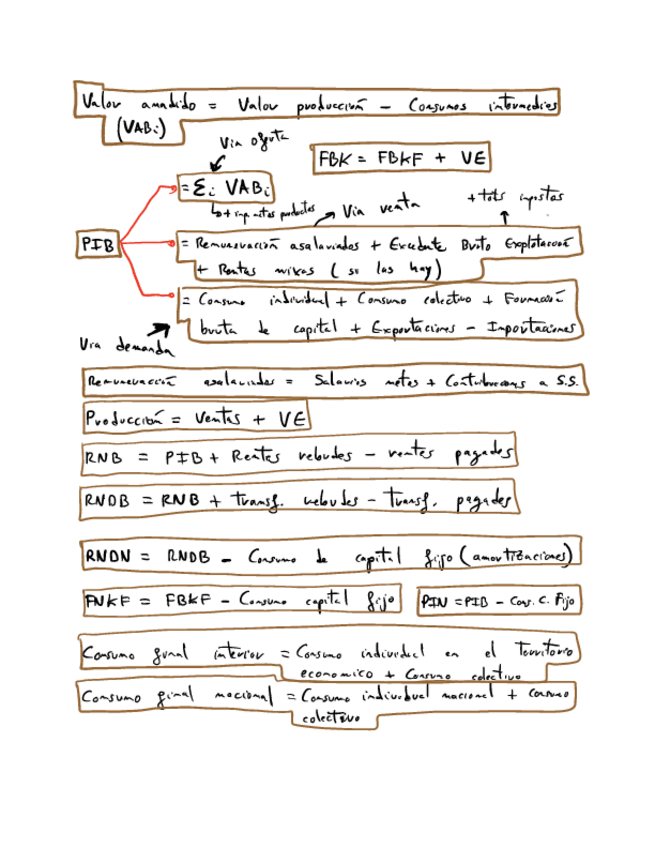 Valor añadido = Valor producción - Consumos intermedios
(VABi)
Via oferta
FBK = FBKF + VE
= Σi VABi
↳ + impuestos productos
Via renta
+ tots impostos
PIB
= Remuneración asalariados + Excedente Bruto Explotación
+ Rentas mixtas (si las hay)
= Consumo individual + Consumo colectivo + Formación
bruta de capital + Exportaciones - Importaciones
Via demanda
Remuneración asalariados = Salarios netos + Contribuciones a S.S.
Producción = Ventas + VE
RNB = PIB + Rentes rebudes - rentes pagades
RNDB = RNB + transf. rebudes - transf. pagades
RNDN = RNDB - Consumo de capital fijo (amortizaciones)
FNKF = FBKF - Consumo capital fijo
PIN = PIB - Cons. C. Fijo
Consumo final interior = Consumo individual en el territorio
economico + Consumo colectivo
Consumo final nacional = Consumo individual nacional + consumo
colectivo